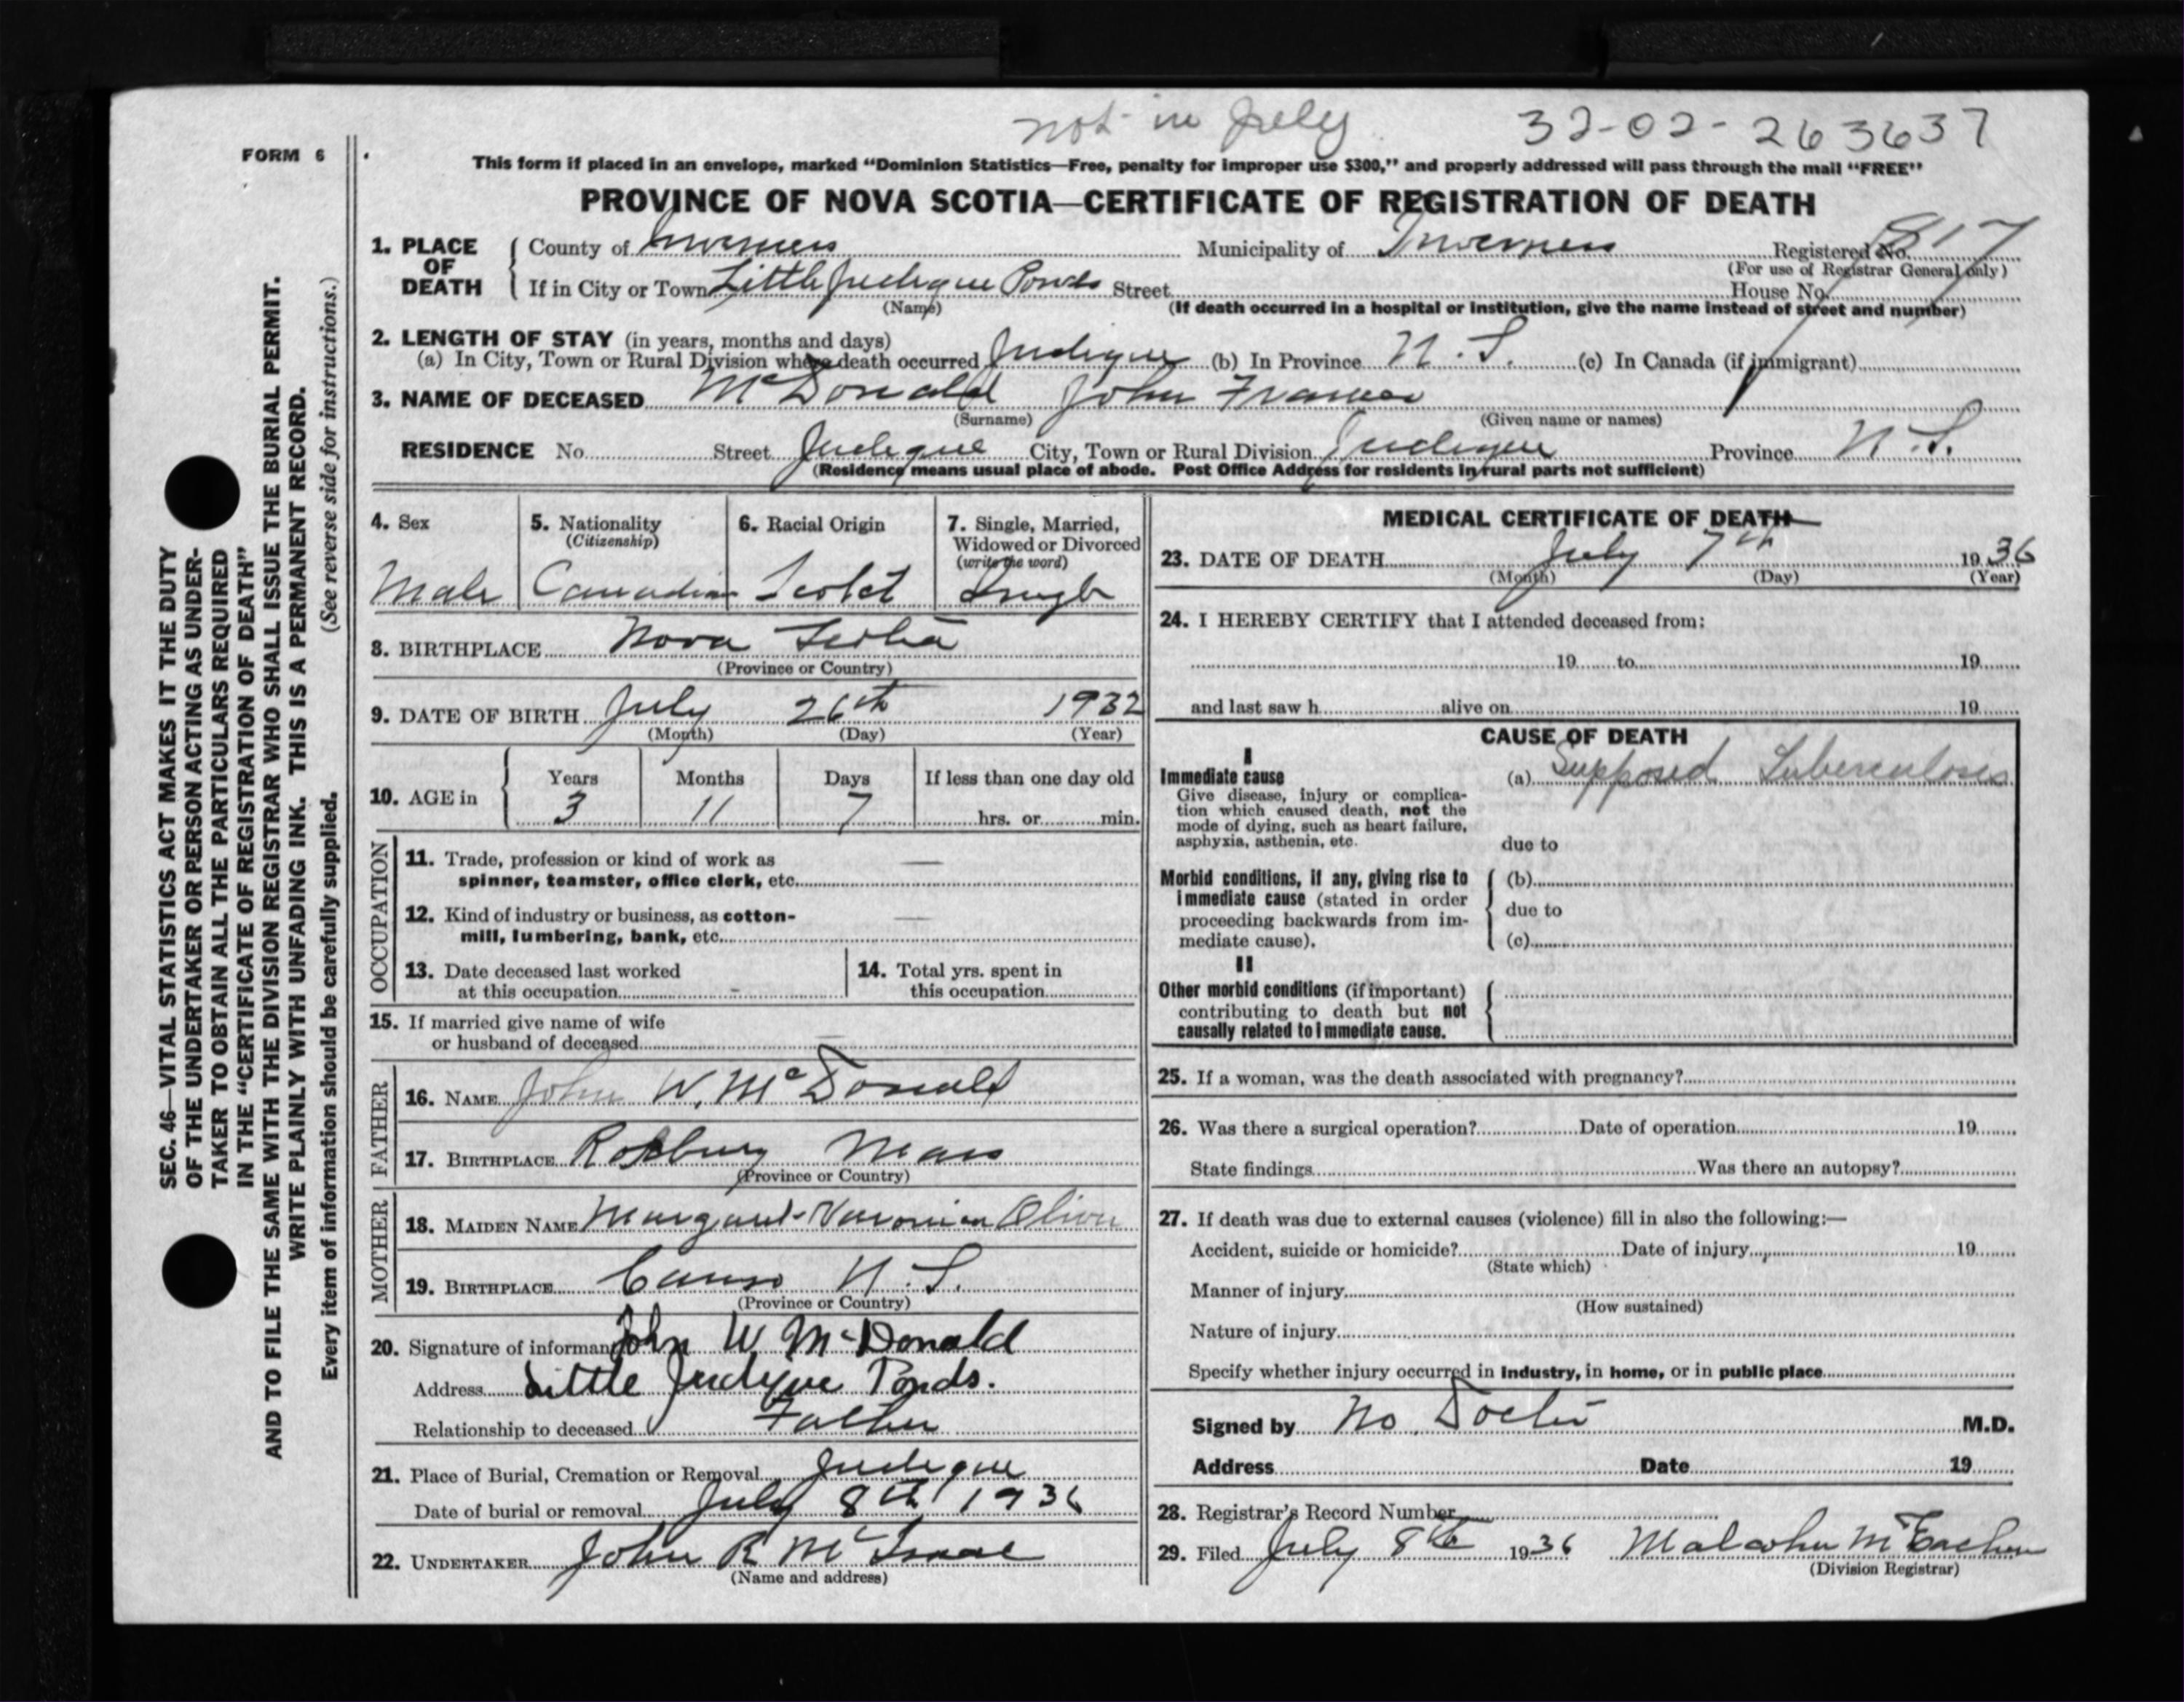 not in July 32-02-263637
FORM 6
This form if placed in an envelope, marked “Dominion Statistics—Free, penalty for improper use $300,” and properly addressed will pass through the mail “FREE”
PROVINCE OF NOVA SCOTIA—CERTIFICATE OF REGISTRATION OF DEATH
1. PLACE OF DEATH
County of Inverness Municipality of Inverness Registered No. 1817
(For use of Registrar General only)
If in City or Town Little Judique Ponds Street House No.
(Name) (If death occurred in a hospital or institution, give the name instead of street and number)
2. LENGTH OF STAY (in years, months and days)
(a) In City, Town or Rural Division where death occurred Judique (b) In Province N.S. (c) In Canada (if immigrant)
3. NAME OF DECEASED McDonald John Francis
(Surname) (Given name or names)
RESIDENCE No. Street Judique City, Town or Rural Division Judique Province N.S.
(Residence means usual place of abode. Post Office Address for residents in rural parts not sufficient)
4. Sex
Male
5. Nationality
(Citizenship)
Canadian
6. Racial Origin
Scotch
7. Single, Married,
Widowed or Divorced
(write the word)
Single
8. BIRTHPLACE Nova Scotia
(Province or Country)
9. DATE OF BIRTH July 26th 1932
(Month) (Day) (Year)
10. AGE in
Years Months Days If less than one day old
3 11 7 hrs. or min.
OCCUPATION
11. Trade, profession or kind of work as —
spinner, teamster, office clerk, etc.
12. Kind of industry or business, as cotton- —
mill, lumbering, bank, etc.
13. Date deceased last worked
at this occupation -
14. Total yrs. spent in
this occupation
15. If married give name of wife
or husband of deceased —
FATHER
16. NAME John W. McDonald
17. BIRTHPLACE Roxbury Mass
(Province or Country)
MOTHER
18. MAIDEN NAME Margaret Veronica
19. BIRTHPLACE Canso N.S.
(Province or Country)
20. Signature of informant John W McDonald
Address Little Judique Ponds.
Relationship to deceased Father
21. Place of Burial, Cremation or Removal Judique
Date of burial or removal July 8th 1936
22. UNDERTAKER John R McIsaac
(Name and address)
MEDICAL CERTIFICATE OF DEATH
23. DATE OF DEATH July 7th 1936
(Month) (Day) (Year)
24. I HEREBY CERTIFY that I attended deceased from:
19 to 19
and last saw h alive on 19
CAUSE OF DEATH
I
Immediate cause
Give disease, injury or complica-
tion which caused death, not the
mode of dying, such as heart failure,
asphyxia, asthenia, etc.
(a) Supposed Tuberculosis
due to
Morbid conditions, if any, giving rise to
immediate cause (stated in order
proceeding backwards from im-
mediate cause).
(b)
due to
(c)
II
Other morbid conditions (if important)
contributing to death but not
causally related to immediate cause.
25. If a woman, was the death associated with pregnancy?
26. Was there a surgical operation? Date of operation 19
State findings Was there an autopsy?
27. If death was due to external causes (violence) fill in also the following:—
Accident, suicide or homicide? Date of injury 19
(State which)
Manner of injury
(How sustained)
Nature of injury
Specify whether injury occurred in industry, in home, or in public place
Signed by No Doctor M.D.
Address Date 19
28. Registrar's Record Number
29. Filed July 8th 1936 Malcolm McEachern
(Division Registrar)
SEC. 46—VITAL STATISTICS ACT MAKES IT THE DUTY
OF THE UNDERTAKER OR PERSON ACTING AS UNDER-
TAKER TO OBTAIN ALL THE PARTICULARS REQUIRED
IN THE “CERTIFICATE OF REGISTRATION OF DEATH”
AND TO FILE THE SAME WITH THE DIVISION REGISTRAR WHO SHALL ISSUE THE BURIAL PERMIT.
WRITE PLAINLY WITH UNFADING INK. THIS IS A PERMANENT RECORD.
Every item of information should be carefully supplied. (See reverse side for instructions.)